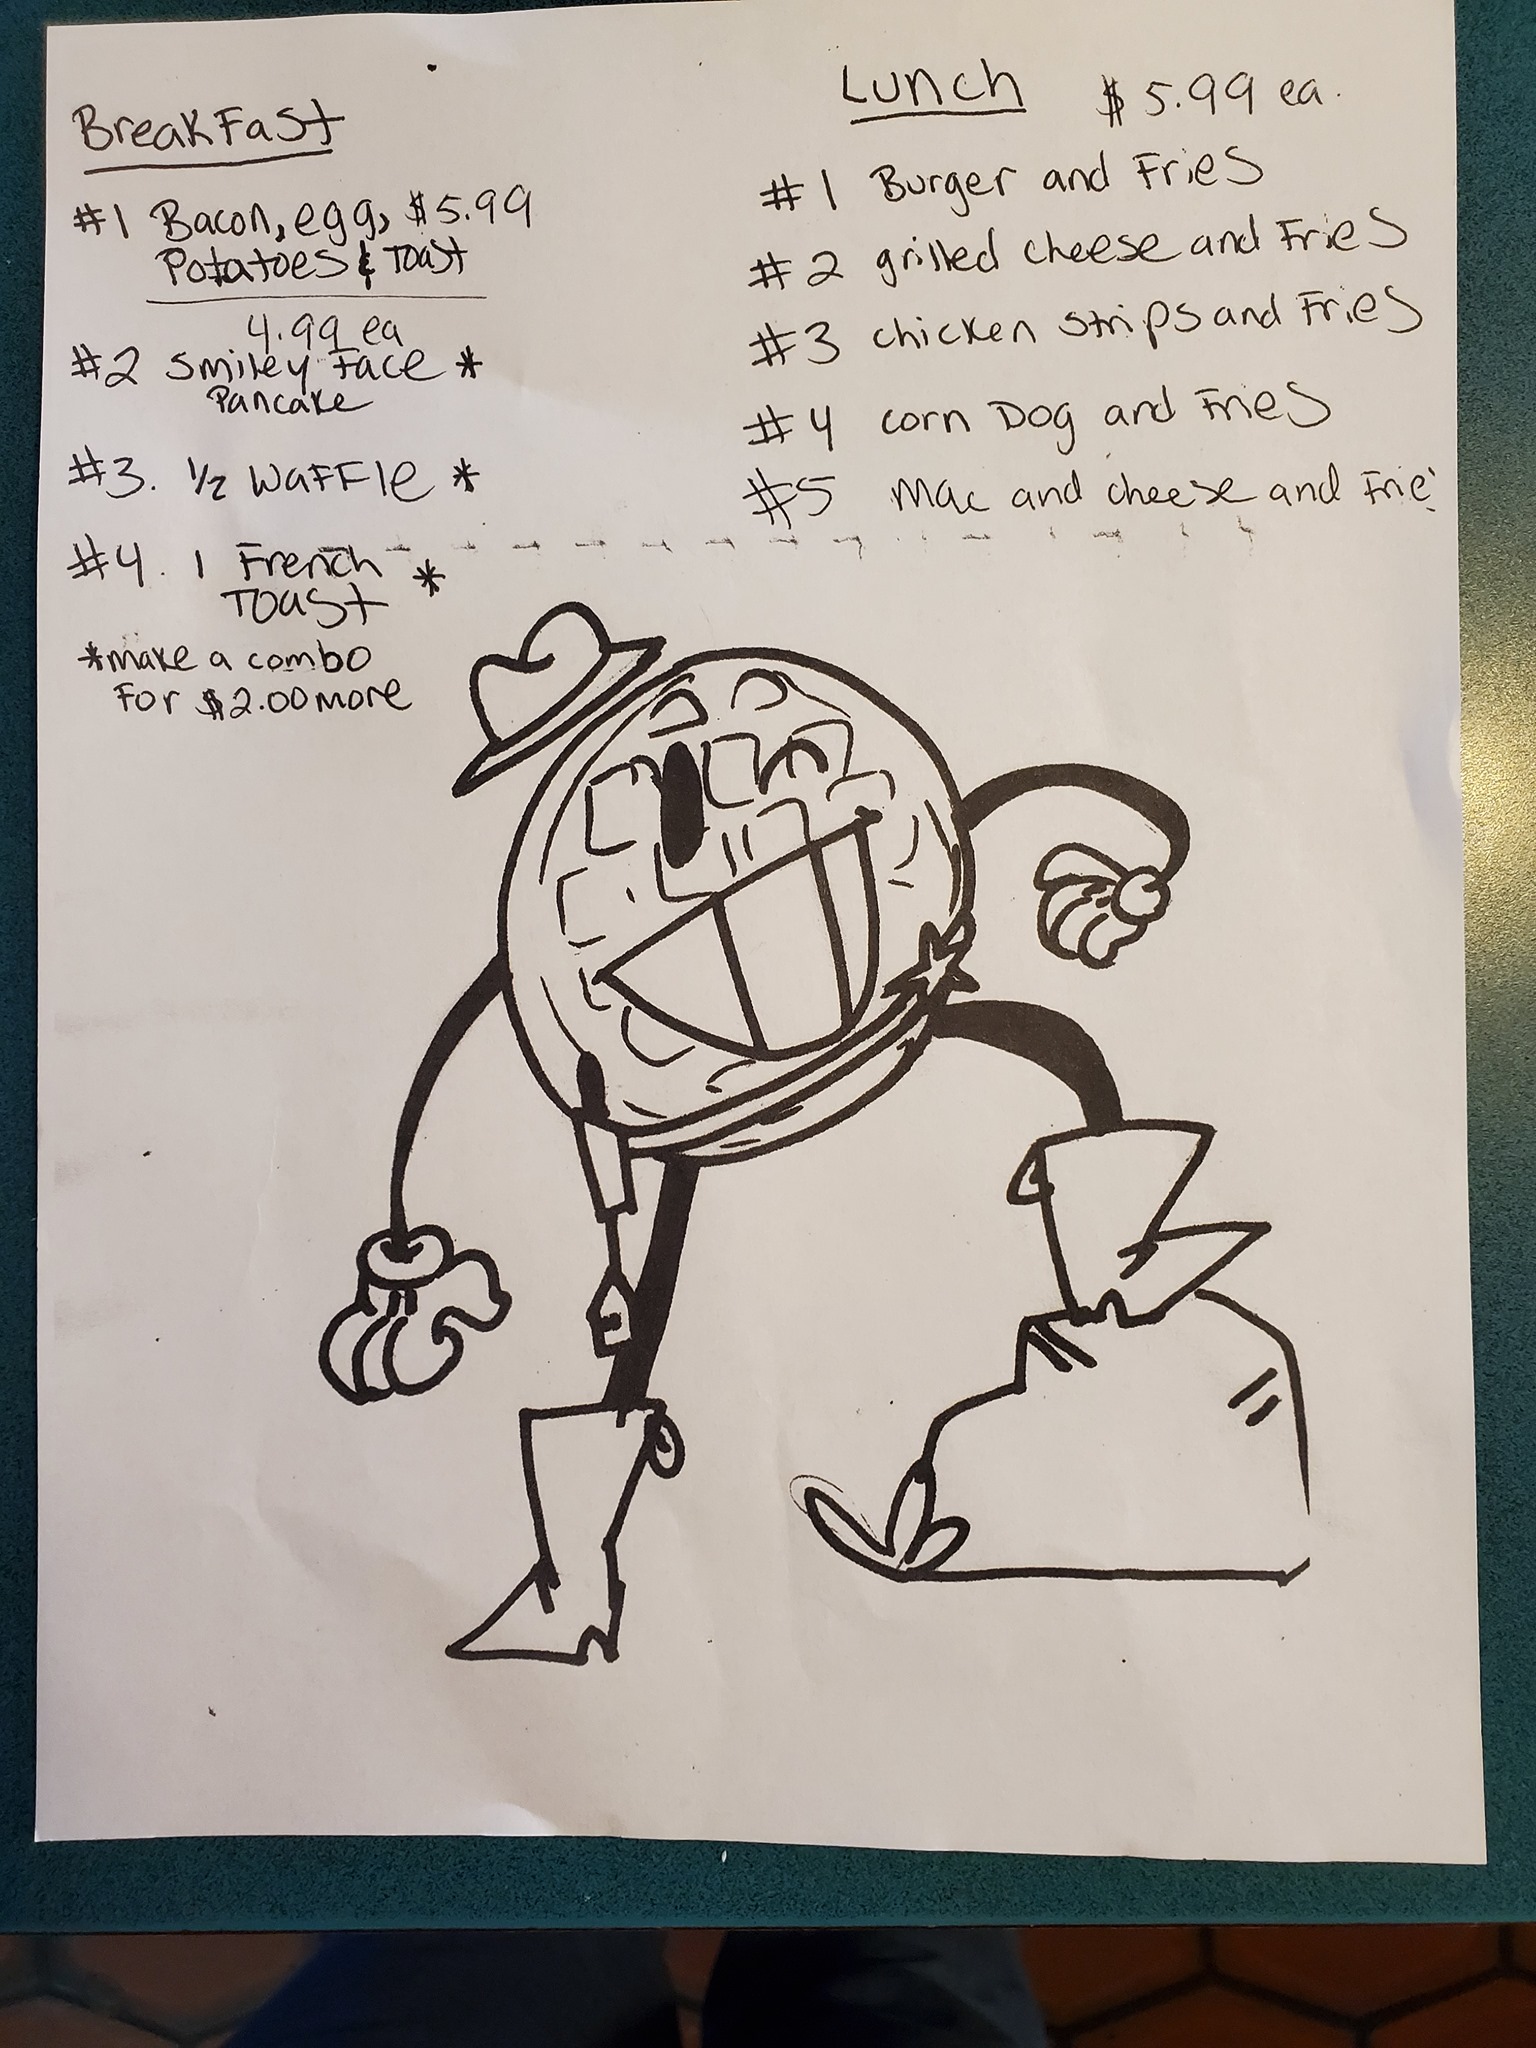 BreakFast
#1 Bacon, egg, $5.99
Potatoes & Toast
4.99 ea
#2 Smiley Face *
Pancake
#3. 1/2 WaFFle *
#4. 1 French *
Toast
*make a combo
For $2.00 more
Lunch $5.99 ea.
#1 Burger and Fries
#2 grilled cheese and Fries
#3 chicken strips and Fries
#4 corn Dog and Fries
#5 Mac and cheese and Frie